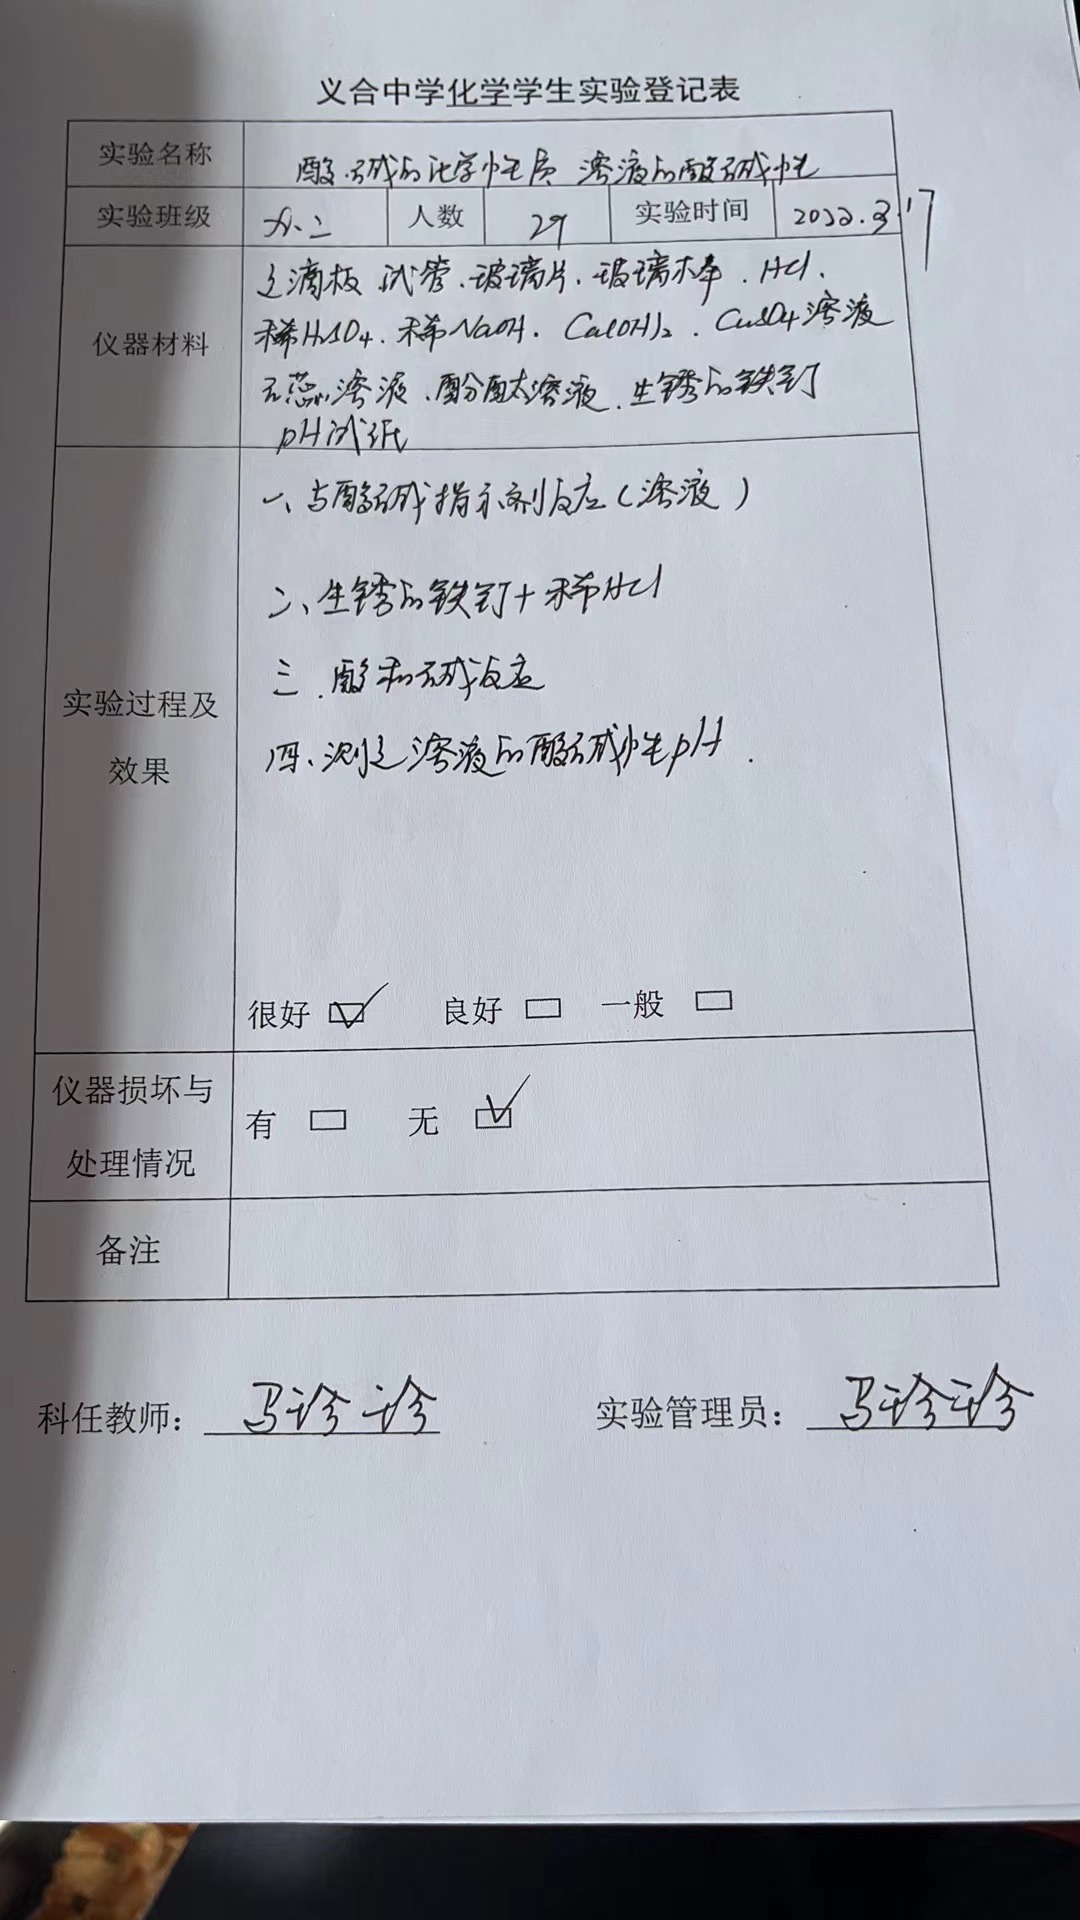 义合中学化学学生实验登记表
实验名称 酸、碱的化学性质 溶液的酸碱性
实验班级 九.二 人数 29 实验时间 2022.3.17
仪器材料
点滴板 试管、玻璃片、玻璃棒、HCl、
稀H2SO4、稀NaOH、Ca(OH)2、CuSO4溶液
石蕊溶液、酚酞溶液、生锈的铁钉
pH试纸
实验过程及
效果
一、与酸碱指示剂反应(溶液)
二、生锈的铁钉+稀HCl
三、酸和碱反应
四、测定溶液的酸碱性pH.
很好 ☑ 良好 □ 一般 □
仪器损坏与
处理情况
有 □ 无 ☑
备注
科任教师: 马诊诊 实验管理员: 马诊诊